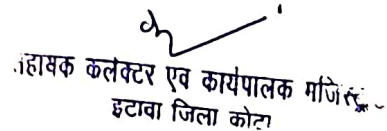 सहायक कलेक्टर एवं कार्यपालक मजिस्
इटावा जिला कोटा